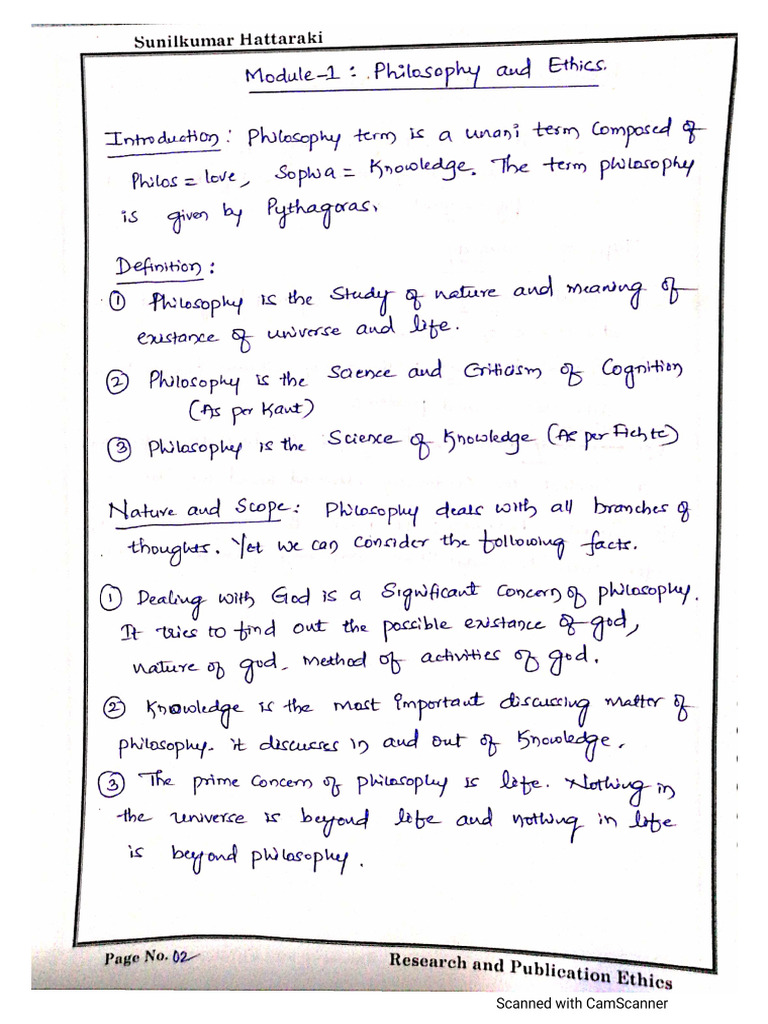 Sunilkumar Hattaraki
Module-1: Philosophy and Ethics.
Introduction: Philosophy term is a unani term composed of
Philos = love, Sophia = Knowledge. The term philosophy
is given by Pythagoras.
Definition:
① Philosophy is the Study of nature and meaning of
existance of universe and life.
② Philosophy is the Science and Criticism of Cognition
(As per Kant)
③ Philosophy is the Science of Knowledge (As per Fichte)
Nature and Scope: Philosophy deals with all branches of
thoughts. Yet we can consider the following facts.
① Dealing with God is a Significant Concern of philosophy.
It tries to find out the possible existance of god,
nature of god, method of activities of god.
② Knowledge is the most important discussing matter of
philosophy. it discusses in and out of Knowledge.
③ The prime concern of philosophy is life. Nothing in
the universe is beyond life and nothing in life
is beyond philosophy.
Page No. 02
Research and Publication Ethics
Scanned with CamScanner